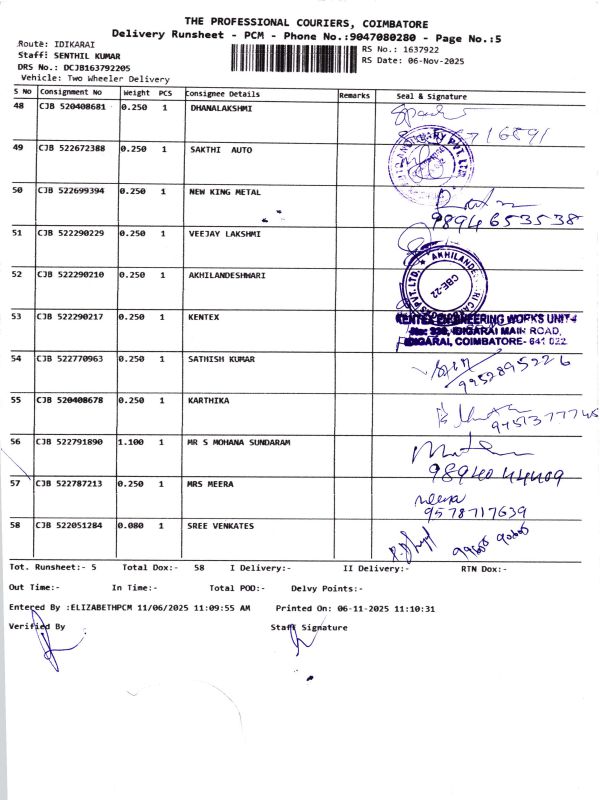 THE PROFESSIONAL COURIERS, COIMBATORE
Delivery Runsheet - PCM - Phone No.:9047080280 - Page No.:5
Route: IDIKARAI
RS No.: 1637922
Staff: SENTHIL KUMAR
RS Date: 06-Nov-2025
DRS No.: DCJB163792205
Vehicle: Two Wheeler Delivery
S NO Consignment No Weight PCS Consignee Details Remarks Seal & Signature
48 CJB 520408681 0.250 1 DHANALAKSHMI
49 CJB 522672388 0.250 1 SAKTHI AUTO
50 CJB 522699394 0.250 1 NEW KING METAL
9894653538
51 CJB 522290229 0.250 1 VEEJAY LAKSHMI
52 CJB 522290210 0.250 1 AKHILANDESHWARI
CBE-22
53 CJB 522290217 0.250 1 KENTEX
KENTEX ENGINEERING WORKS UNIT-
IDIGARAI MAIN ROAD,
IDIGARAI, COIMBATORE- 641 022.
54 CJB 522770963 0.250 1 SATHISH KUMAR
9952895226
55 CJB 520408678 0.250 1 KARTHIKA
56 CJB 522791890 1.100 1 MR S MOHANA SUNDARAM
57 CJB 522787213 0.250 1 MRS MEERA
meera
9578717639
58 CJB 522051284 0.080 1 SREE VENKATES
Tot. Runsheet:- 5 Total Dox:- 58 I Delivery:- II Delivery:- RTN Dox:-
Out Time:- In Time:- Total POD:- Delvy Points:-
Entered By :ELIZABETHPCM 11/06/2025 11:09:55 AM Printed On: 06-11-2025 11:10:31
Verified By Staff Signature